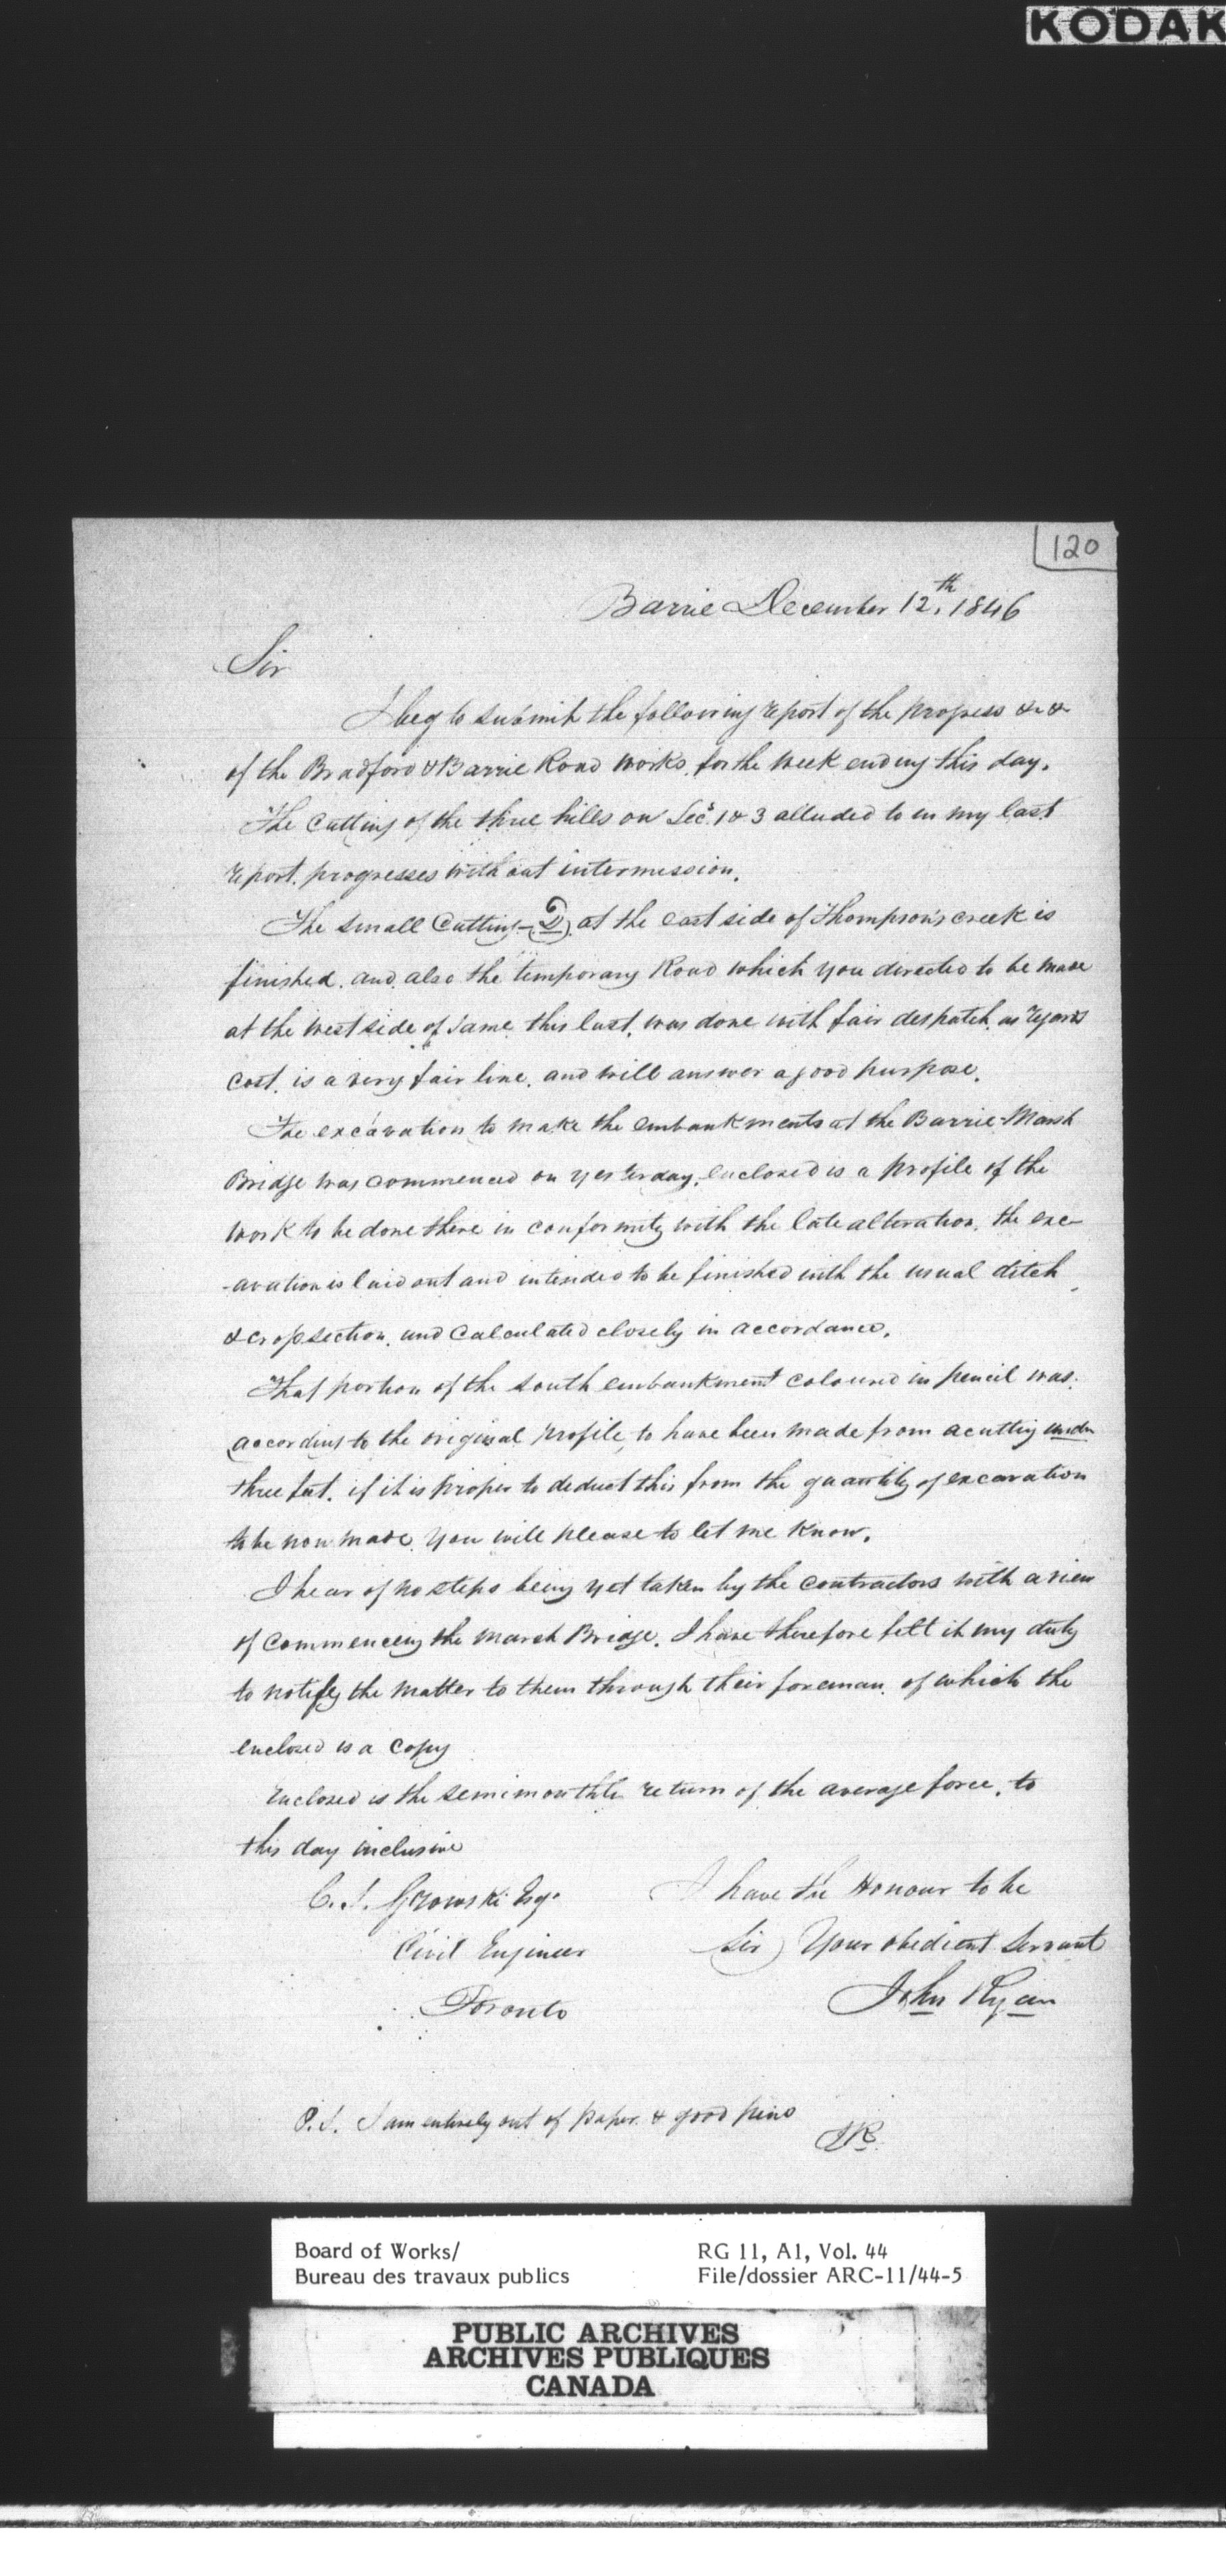 KODAK
120
Barrie December 12th. 1846
Sir
I beg to submit the following report of the progress &c &c
of the Bradford & Barrie Road works, for the week ending this day.
The Cutting of the three hills on Secs. 1 & 3 alluded to in my last
report. progresses without intermission.
The small Cutting - (D) at the east side of Thompson's creek is
finished. and also the temporary Road which you directed to be made
at the west side of same. this last, was done with fair despatch. as regards
cost. is a very fair line. and will answer a good purpose.
The excavation to make the embankments at the Barrie Marsh
Bridge was commenced on yesterday, enclosed is a profile of the
work to be done there in conformity with the late alteration. the exc-
-avation is laid out and intended to be finished with the usual ditch
& crop section. and calculated closely in accordance.
That portion of the south embankment coloured in pencil was,
according to the original profile, to have been made from a cutting under
three feet. if it is proper to deduct this from the quantity of excavation
to be now made. you will please to let me know.
I hear of no steps being yet taken by the contractors with a view
of commencing the marsh Bridge. I have therefore felt it my duty
to notify the matter to them through their foreman. of which the
enclosed is a copy
Enclosed is the semimonthly return of the average force. to
this day inclusive
C. S. Gzowski Esqr. I have the Honour to be
Civil Engineer Sir) Your obedient Servant
Toronto John Ryan
P.S. I am entirely out of paper & good pens
JR.
Board of Works/ RG 11, A1, Vol. 44
Bureau des travaux publics File/dossier ARC-11/44-5
PUBLIC ARCHIVES
ARCHIVES PUBLIQUES
CANADA